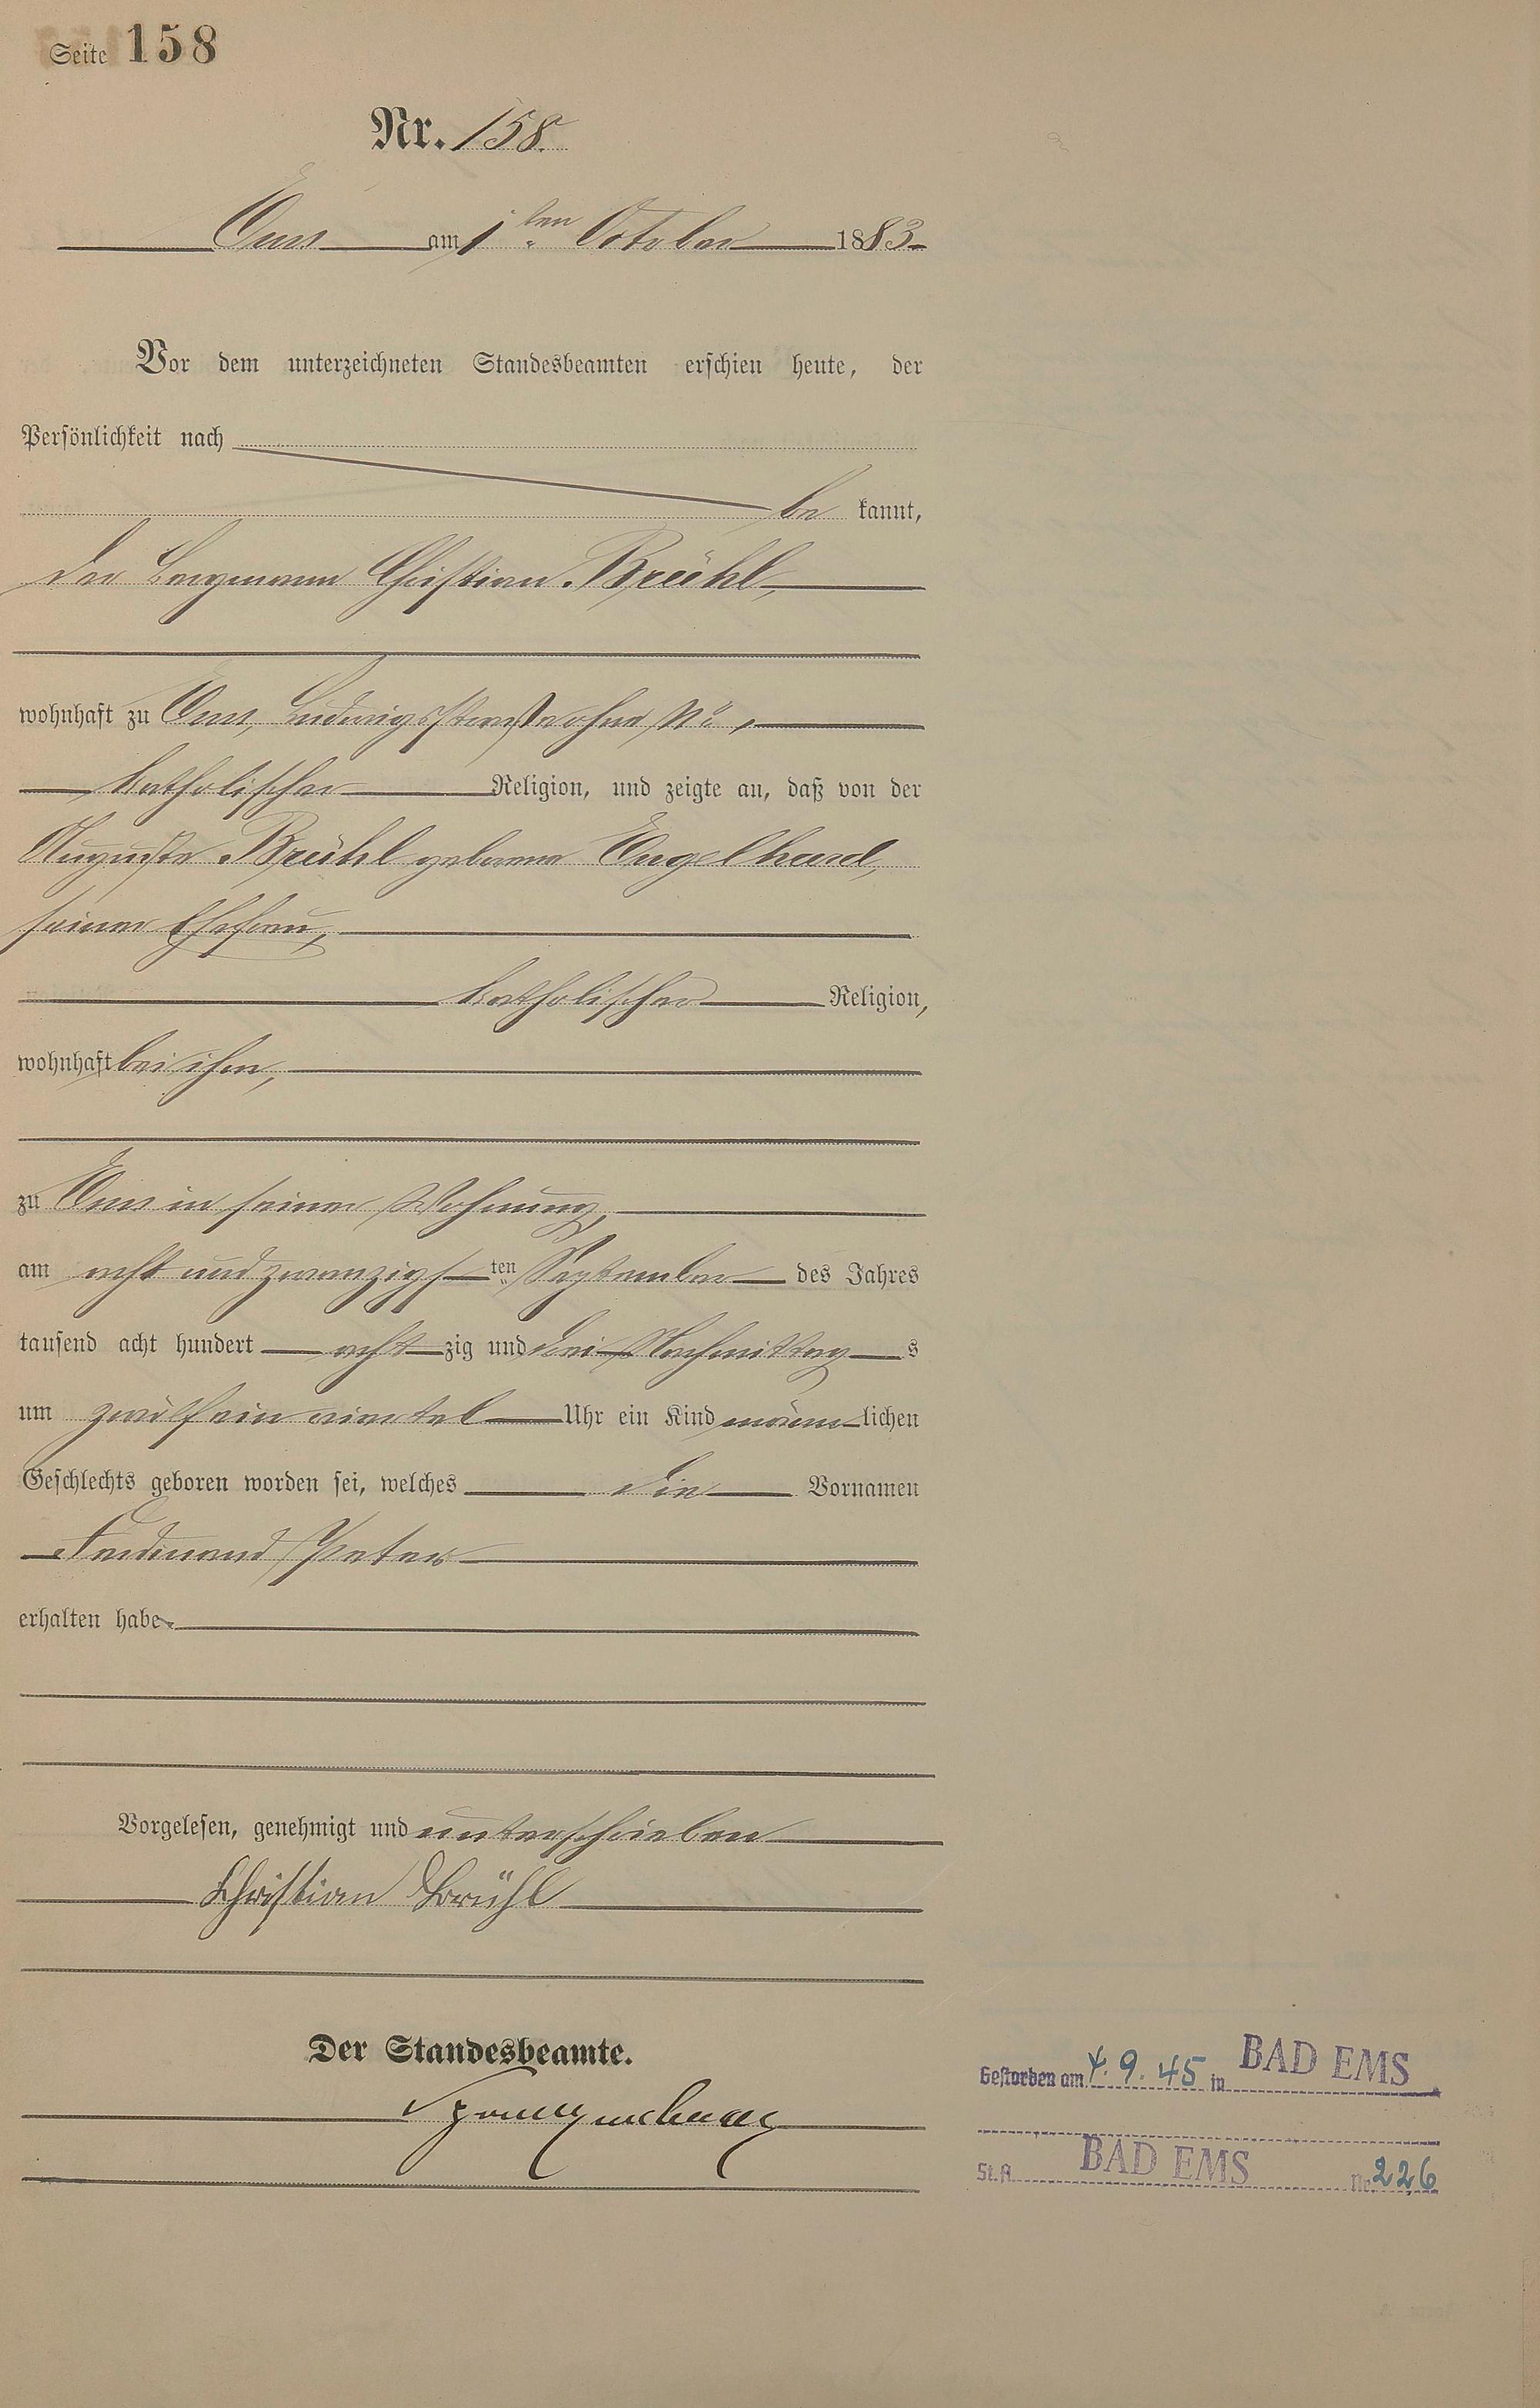 Seite 158
Nr. 158.
Ems am 1ten October 1883
Vor dem unterzeichneten Standesbeamten erschien heute, der
Persönlichkeit nach
be kannt,
der Bergmann Christian Brühl,
wohnhaft zu Ems, Ludwigsstraße ohne No.,
katholischer Religion, und zeigte an, daß von der
Auguste Brühl geborene Engelhard,
seiner Ehefrau,
katholischer Religion,
wohnhaft bei ihm,
zu Ems in seiner Wohnung,
am acht und zwanzigsten September des Jahres
tausend acht hundert acht zig und drei Nachmittags
um zwölf ein viertel Uhr ein Kind männlichen
Geschlechts geboren worden sei, welches die Vornamen
Ferdinand Peter
erhalten habe
Vorgelesen, genehmigt und unterschrieben
Christian Brühl
Der Standesbeamte.
Gestorben am 4. 9. 45 in BAD EMS
St.A. BAD EMS No 226